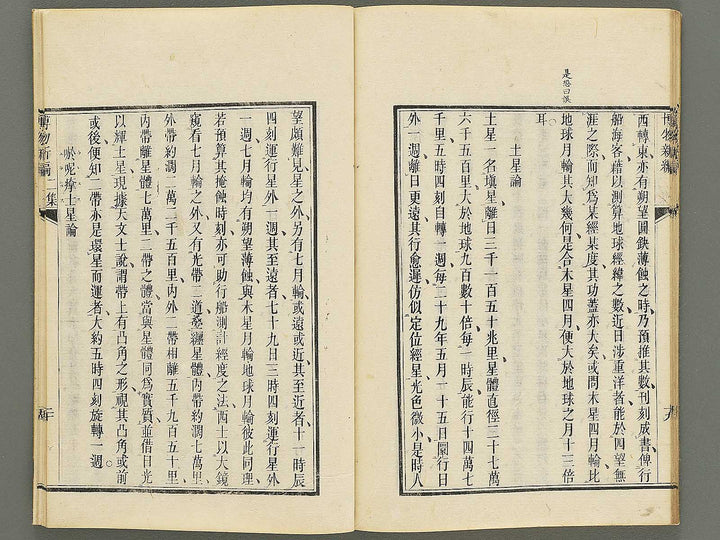 是恐曰誤
西轉東亦有朔望圓鈌薄蝕之時乃預推其數刊刻成書俾行
船海客藉以測算地球經緯之數近日涉重洋者能於四望無
涯之際而知為某經某度其功蓋亦大矣或問木星四月輪比
地球月輪其大幾何是合木星四月便大於地球之月十三倍
耳
土星論
土星一名填星離日三千一百五十兆里星體直徑二十七萬
六千五百里大於地球九百數十倍每一時辰能行十四萬七
千里五時四刻自轉一週每二十九年五月一十五日圜行日
外一週離日更遠其行愈遲仿似定位經星光色微小是時人
望頗難見星之外另有七月輪或遠或近其至近者十一時辰
四刻運行星外一週其至遠者七十九日三時四刻運行星外
一週七月輪均有朔望薄蝕與木星月輪地球月輪彼此同理
若預算其掩蝕時刻亦可助行船測計經度之法西士以大鏡
窺看七月輪之外又有光帶二道纍纒星體內帶約濶七萬里
外帶約濶二萬二千五百里內外二帶相離五千九百五十里
內帶離星體七萬里二帶之體當與星體同為實質並借日光
以輝土星現據天文士說謂帶上有凸角之形視其凸角或前
或後便知二帶亦是環星而運者大約五時四刻旋轉一週
土星論
博物新編二集